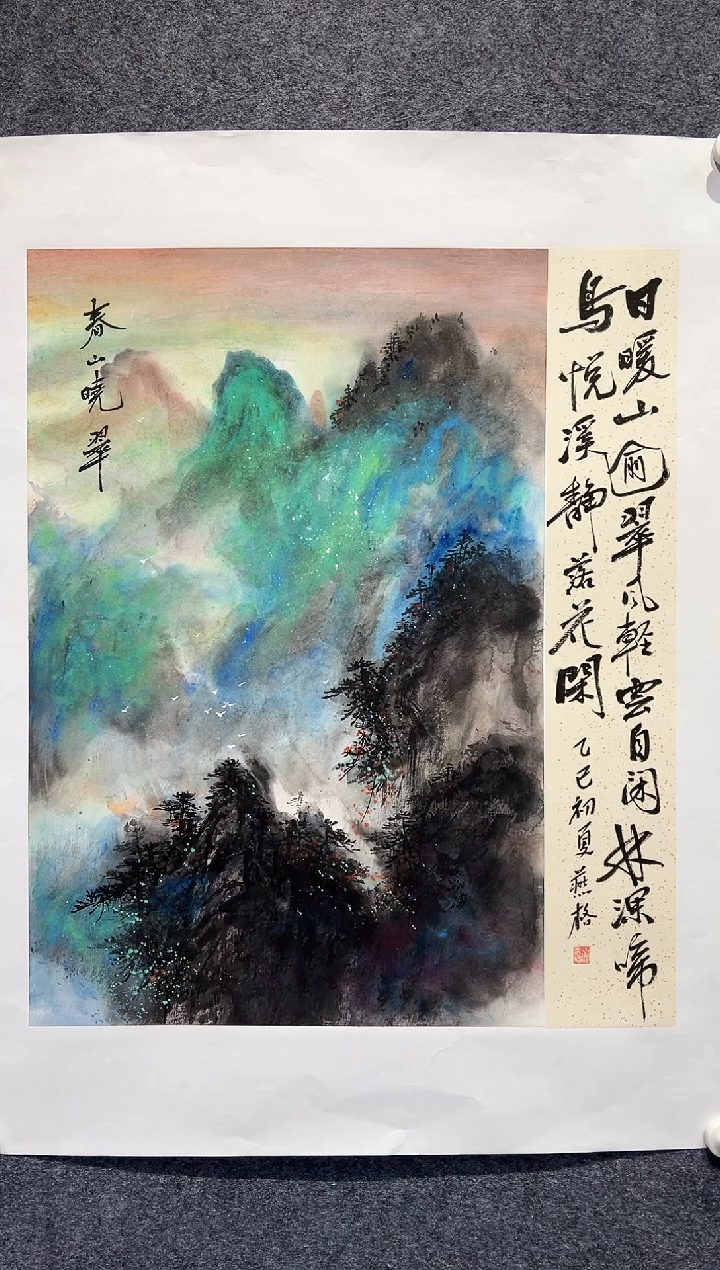 春山曉翠
日暖山俞翠风輕雲自闲林深啼
鳥悦溪静落花閑
乙巳初夏燕格